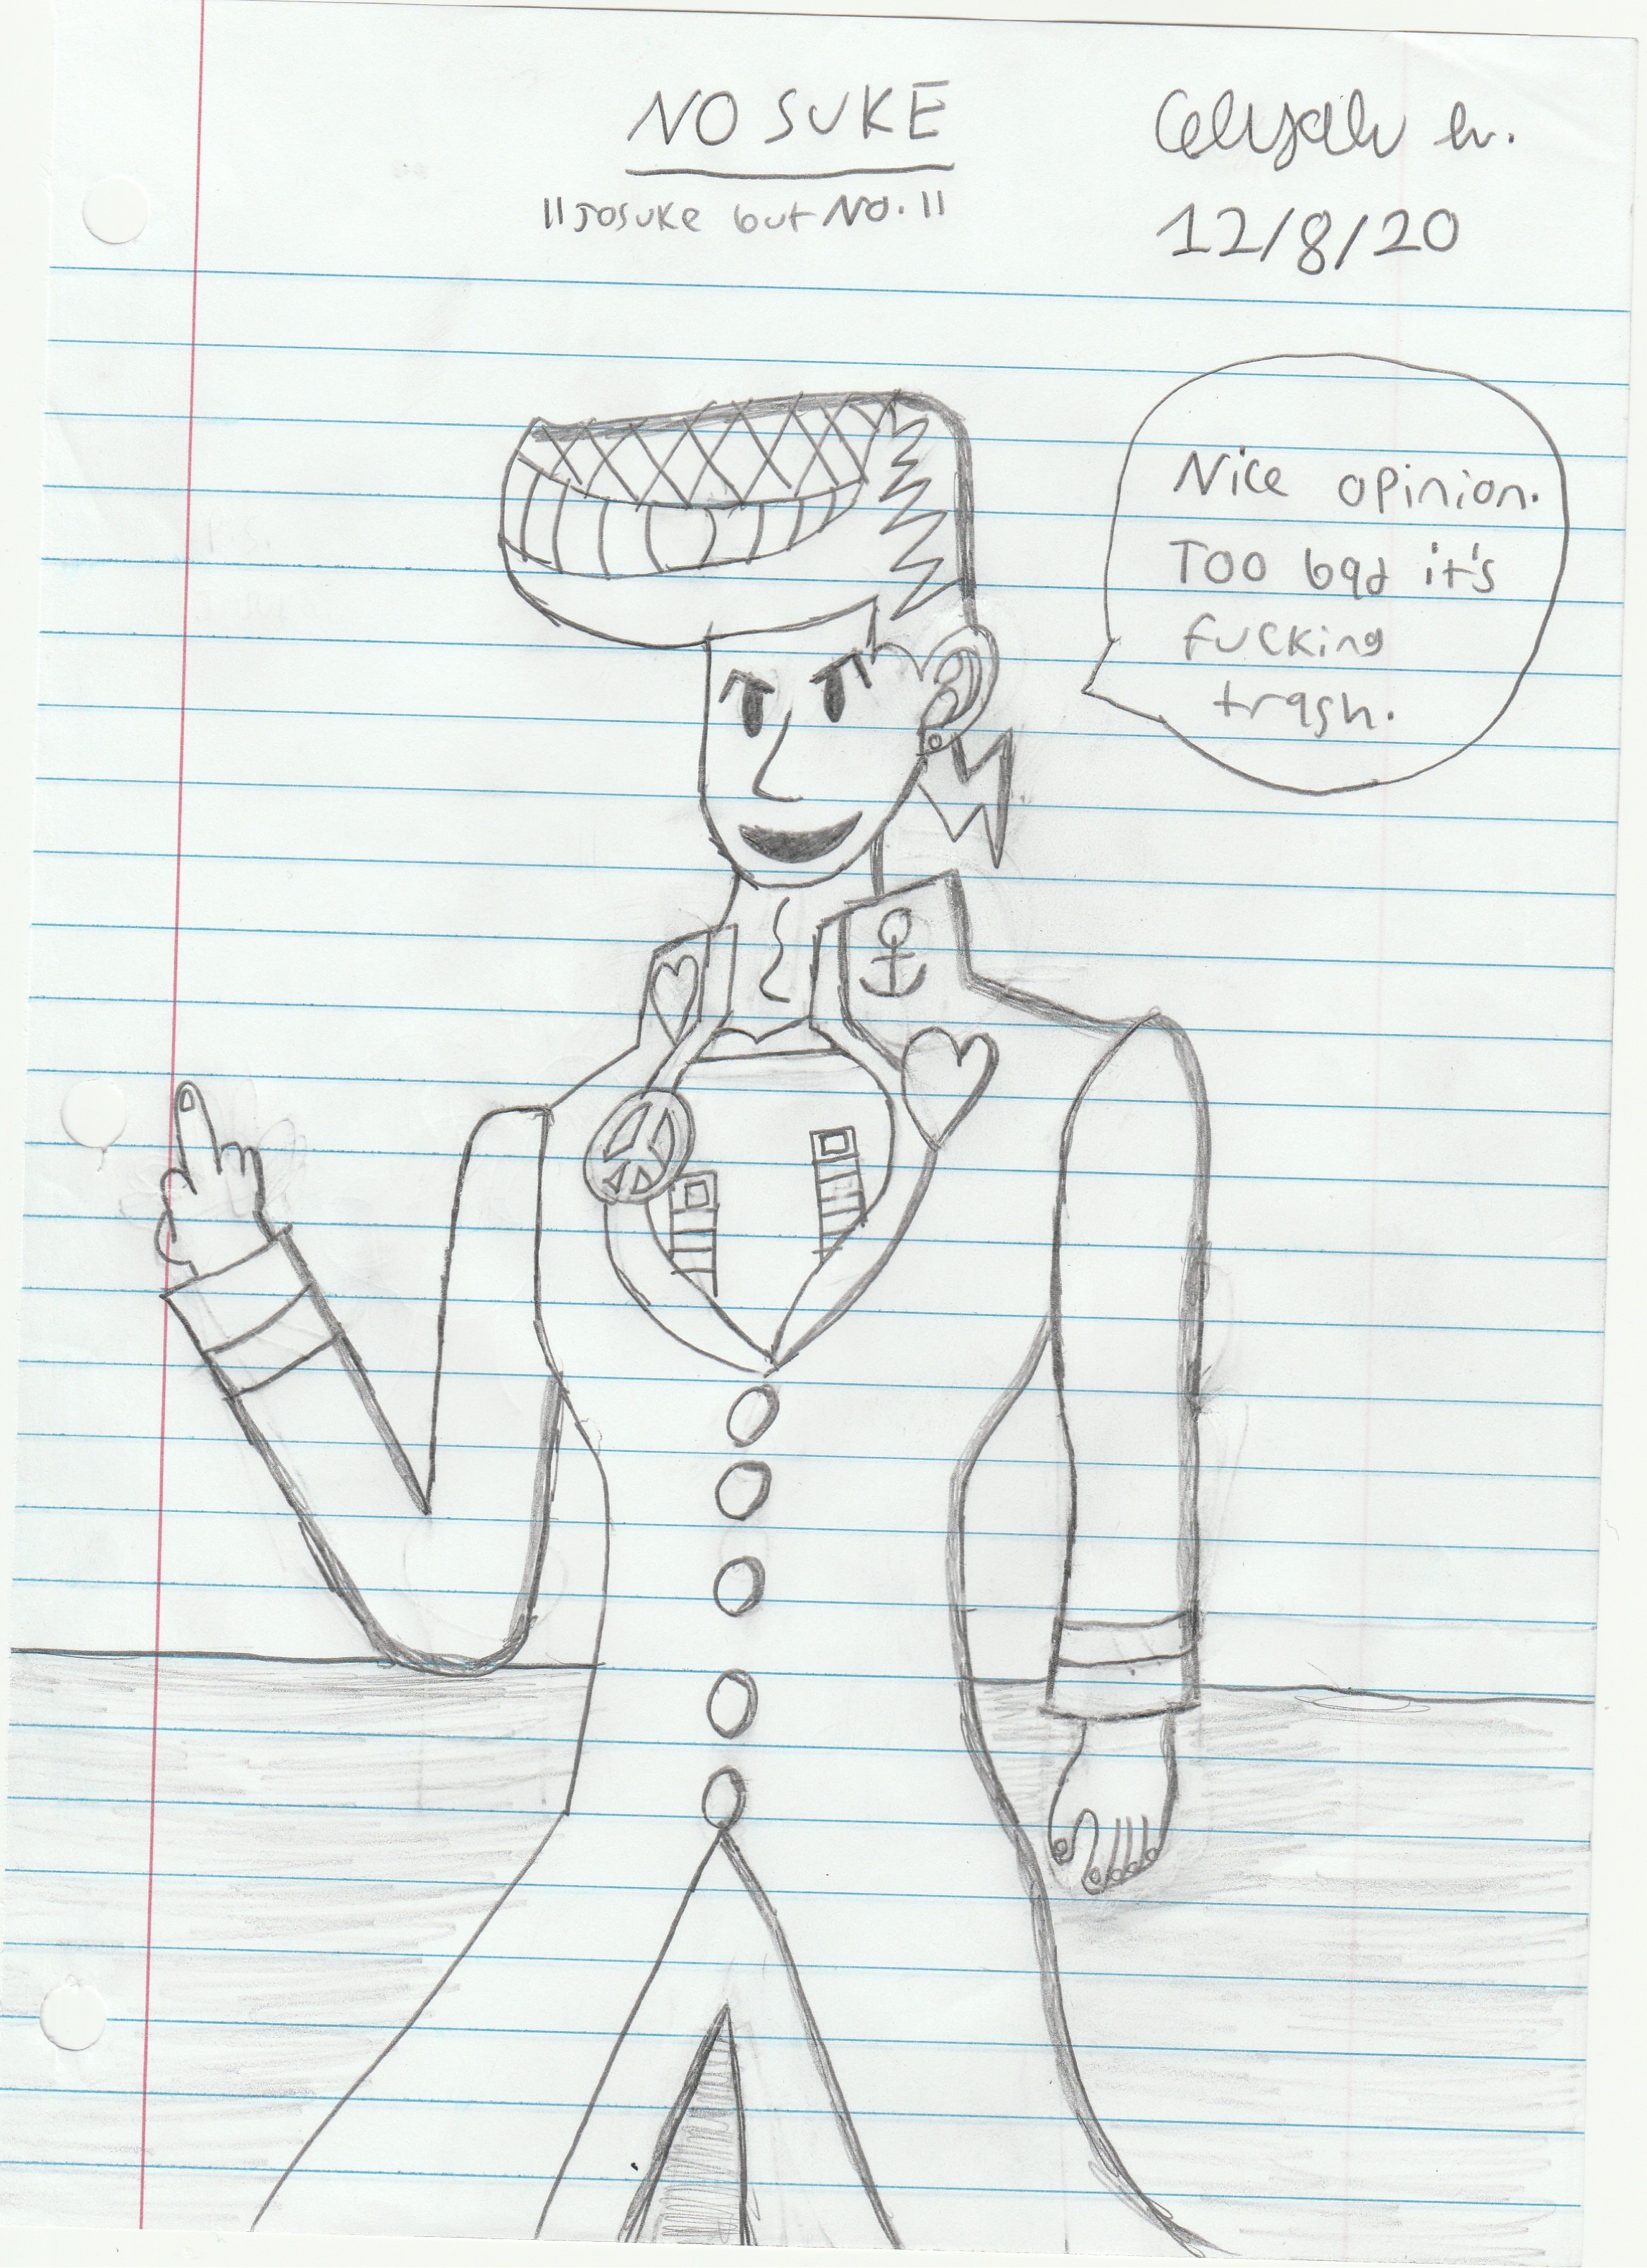 NO SUKE
"Josuke but No."
12/8/20
Nice opinion.
Too bad it's
fucking
trash.